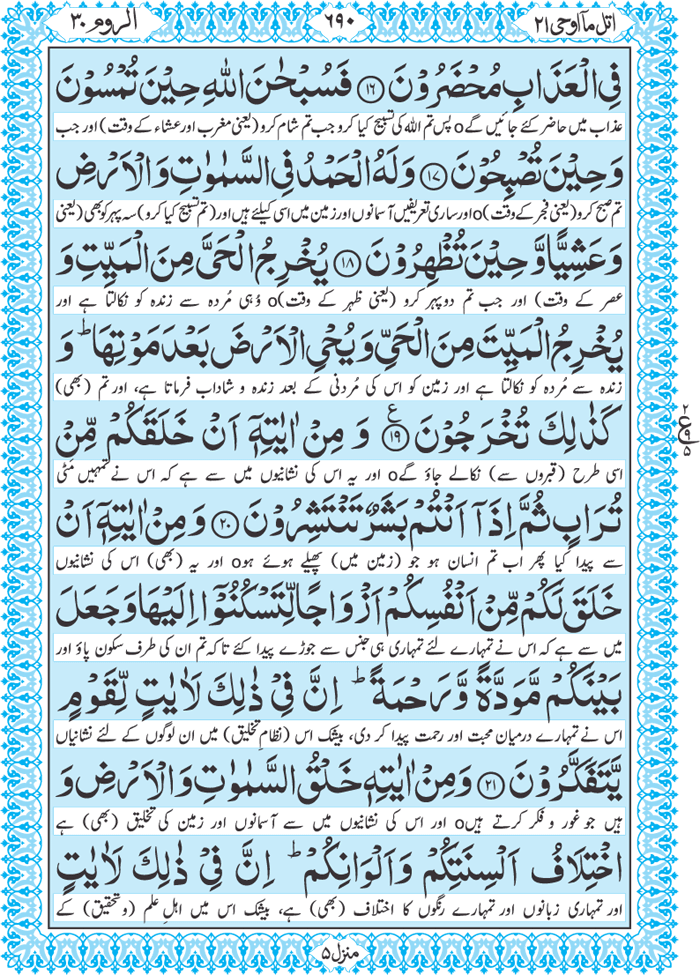 اتل مآ اوحی ۲۱
۶۹۰
الروم ۳۰
فِی الْعَذَابِ مُحْضَرُوْنَ ﴿۱۶﴾ فَسُبْحٰنَ اللّٰهِ حِیْنَ تُمْسُوْنَ
عذاب میں حاضر کئے جائیں گےo پس تم اللہ کی تسبیح کیا کرو جب تم شام کرو (یعنی مغرب اور عشاء کے وقت) اور جب
وَ حِیْنَ تُصْبِحُوْنَ ﴿۱۷﴾ وَ لَهُ الْحَمْدُ فِی السَّمٰوٰتِ وَ الْاَرْضِ
تم صبح کرو (یعنی فجر کے وقت)o اور ساری تعریفیں آسمانوں اور زمین میں اسی کیلئے ہیں اور (تم تسبیح کیا کرو) سہ پہر کو بھی (یعنی
وَ عَشِیًّا وَّ حِیْنَ تُظْهِرُوْنَ ﴿۱۸﴾ یُخْرِجُ الْحَیَّ مِنَ الْمَیِّتِ وَ
عصر کے وقت) اور جب تم دوپہر کرو (یعنی ظہر کے وقت)o وُہی مُردہ سے زندہ کو نکالتا ہے اور
یُخْرِجُ الْمَیِّتَ مِنَ الْحَیِّ وَ یُحْیِ الْاَرْضَ بَعْدَ مَوْتِهَا ؕ وَ
زندہ سے مُردہ کو نکالتا ہے اور زمین کو اس کی مُردنی کے بعد زندہ و شاداب فرماتا ہے، اور تم (بھی)
كَذٰلِكَ تُخْرَجُوْنَ ﴿۱۹﴾ ع وَ مِنْ اٰیٰتِهٖۤ اَنْ خَلَقَكُمْ مِّنْ
اسی طرح (قبروں سے) نکالے جاؤ گےo اور یہ اس کی نشانیوں میں سے ہے کہ اس نے تمہیں مٹی
تُرَابٍ ثُمَّ اِذَاۤ اَنْتُمْ بَشَرٌ تَنْتَشِرُوْنَ ﴿۲۰﴾ وَ مِنْ اٰیٰتِهٖۤ اَنْ
سے پیدا کیا پھر اب تم انسان ہو جو (زمین میں) پھیلے ہوئے ہوo اور یہ (بھی) اس کی نشانیوں
خَلَقَ لَكُمْ مِّنْ اَنْفُسِكُمْ اَزْوَاجًا لِّتَسْكُنُوْۤا اِلَیْهَا وَ جَعَلَ
میں سے ہے کہ اس نے تمہارے لئے تمہاری ہی جنس سے جوڑے پیدا کئے تاکہ تم ان کی طرف سکون پاؤ اور
بَیْنَكُمْ مَّوَدَّةً وَّ رَحْمَةً ؕ اِنَّ فِیْ ذٰلِكَ لَاٰیٰتٍ لِّقَوْمٍ
اس نے تمہارے درمیان محبت اور رحمت پیدا کر دی، بیشک اس (نظامِ تخلیق) میں ان لوگوں کے لئے نشانیاں
یَّتَفَكَّرُوْنَ ﴿۲۱﴾ وَ مِنْ اٰیٰتِهٖ خَلْقُ السَّمٰوٰتِ وَ الْاَرْضِ وَ
ہیں جو غور و فکر کرتے ہیںo اور اس کی نشانیوں میں سے آسمانوں اور زمین کی تخلیق (بھی) ہے
اخْتِلَافُ اَلْسِنَتِكُمْ وَ اَلْوَانِكُمْ ؕ اِنَّ فِیْ ذٰلِكَ لَاٰیٰتٍ
اور تمہاری زبانوں اور تمہارے رنگوں کا اختلاف (بھی) ہے، بیشک اس میں اہلِ علم (و تحقیق) کے
منزل ۵